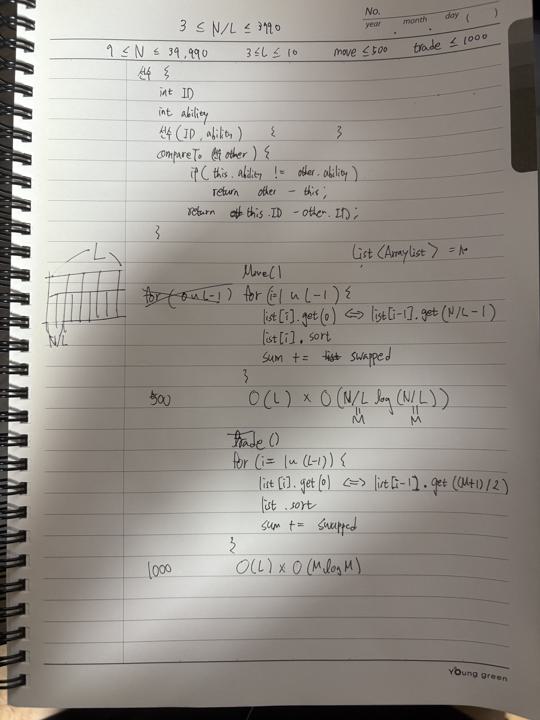 3 ≤ N/L ≤ 3990
No.
year . month . day ( )
9 ≤ N ≤ 39,990 3≤L ≤ 10 move ≤500 trade ≤ 1000
선수 {
int ID
int ability
선수 (ID, ability) { }
compareTo (선수 other) {
if( this.ability != other.ability)
return other - this;
return this.ID - other.ID;
}
L
List <Arraylist> =
Move()
for ( 0 u L-1) for (i=1 u L-1) {
list[i].get(0) ⇔ list[i-1].get(N/L-1)
N/L
list[i].sort
sum += swapped
}
500 O(L) × O(N/L log(N/L))
M M
trade ()
for (i= 1 u (L-1)) {
list[i].get(0) ⇔ list[i-1].get((M+1)/2)
list.sort
sum += swapped
}
1000 O(L) × O(MlogM)
Young green